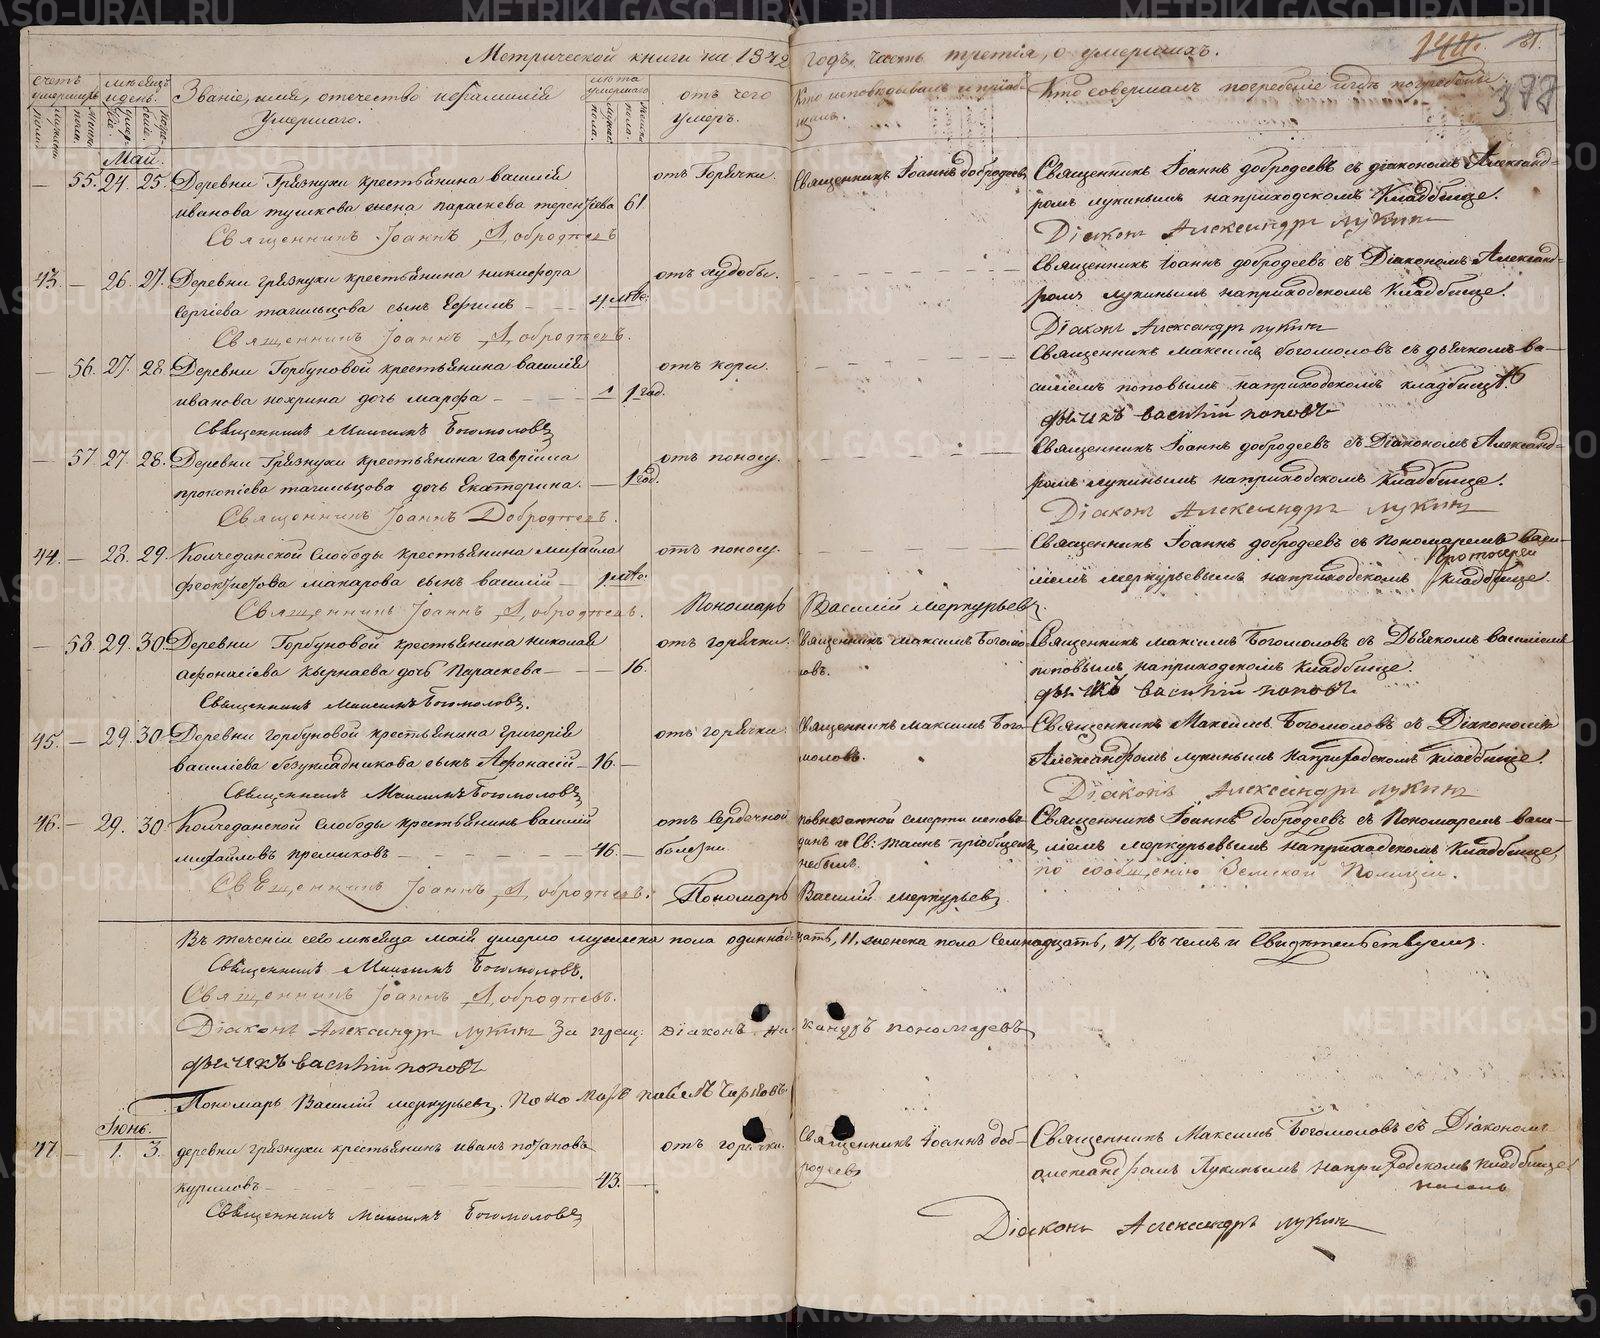 Метрической книги на 1842 годъ, часть третія, о умершихъ.
144. 81.
377
счетъ умершихъ
мужеска пола.
женска пола.
мѣсяцъ и день.
смерти
погребенія
Званіе, имя, отечество и фамилія умершаго.
лѣта умершаго
мужес. пола.
женска пола.
отъ чего умеръ.
Кто исповѣдывалъ и пріобщалъ.
Кто совершалъ погребеніе и гдѣ погребены.
Май.
— 55. 24. 25. Деревни Грязнухи крестьянина василія отъ Горячки. Священникъ Іоаннъ добродѣевъ Священникъ Іоаннъ добродѣевъ съ діакономъ Александ-
иванова тушкова жена параскева терентіева 61 ромъ лукинымъ наприходскомъ Кладбище.
Священникъ Іоаннъ Добродѣевъ Діаконъ Александръ лукинъ
43. — 26. 27. Деревни грязнухи крестьянина никифора отъ худобы. Священникъ Іоаннъ добродѣевъ съ Діакономъ Александ-
сергіева тагильцова сынъ Ефимъ ромъ лукинымъ наприходскомъ Кладбище.
Священникъ Іоаннъ Добродѣевъ. Діаконъ Александръ лукинъ
— 56. 27. 28. Деревни Горбуновой крестьянина василія отъ кори. Священникъ максимъ богомоловъ съ дьячкомъ ва-
иванова нохрина дочь марфа 1 год. силіемъ поповымъ наприходскомъ кладбищѣ
Священникъ Максимъ Богомоловъ дьячекъ василій поповъ
— 57. 27. 28. Деревни Грязнухи крестьянина гавріила отъ поносу. Священникъ Іоаннъ добродѣевъ съ Діакономъ Александ-
прокопіева тагильцова дочь Екатерина. — 1 год. ромъ лукинымъ наприходскомъ Кладбище.
Священникъ Іоаннъ Добродѣевъ. Діаконъ Александръ лукинъ
44. — 28. 29. Колчеданской Слободы крестьянина михаила отъ поносу. Священникъ Іоаннъ добродѣевъ съ пономаремъ васи-
феоктистова макарова сынъ василій — ліемъ меркурьевымъ наприходскомъ кладбище.
Священникъ Іоаннъ Добродѣевъ. Пономарь Василій меркурьевъ.
— 58. 29. 30. Деревни Горбуновой крестьянина николая отъ горячки. священникъ максимъ богомо- Священникъ максимъ Богомоловъ съ Дьячкомъ василіемъ
афонасіева кырнаева дочь Параскева — 16. ловъ. поповымъ наприходскомъ кладбище.
Священникъ Максимъ Богомоловъ. дьячекъ василій поповъ
45. — 29. 30. Деревни горбуновой крестьянина григорія отъ горячки. Священникъ максимъ Бого- Священникъ Максимъ Богомоловъ съ Діакономъ
василіева безукладникова сынъ Афонасій — 16. — моловъ. Александромъ лукинымъ наприходскомъ кладбище.
Священникъ Максимъ Богомоловъ Діаконъ Александръ лукинъ
46. — 29. 30. Колчеданской Слободы крестьянинъ василій отъ Сердечной повнезапной смерти испове- Священникъ Іоаннъ добродѣевъ съ Пономаремъ васи-
михайловъ премиковъ 46. — болезни. данъ и Св: таинъ пріобщенъ ліемъ меркурьевымъ наприходскомъ Кладбище,
небылъ. по сообщенію Земской Полиціи.
Священникъ Іоаннъ Добродѣевъ: Пономарь Василій меркурьевъ
Въ теченіи сего мѣсяца маія умерло мужеска пола одиннадцать, 11. женска пола Семнадцать, 17, въ чемъ и Свидѣтельствуемъ.
Священникъ Максимъ Богомоловъ.
Священникъ Іоаннъ Добродѣевъ.
Діаконъ Александръ лукинъ діаконъ никандръ пономаревъ
дьячекъ василій поповъ
Пономарь Василій меркурьевъ. Пономарь
Іюнь.
47 — 1. 3. деревни грязнухи крестьянинъ иванъ потаповъ отъ горячки. Священникъ Іоаннъ доб- Священникъ Максимъ Богомоловъ съ Діакономъ
куриловъ 43. — родѣевъ александромъ Лукинымъ наприходскомъ кладбище
Священникъ Максимъ Богомоловъ
Діаконъ Александръ лукинъ
METRIKI.GASO-URAL.RU